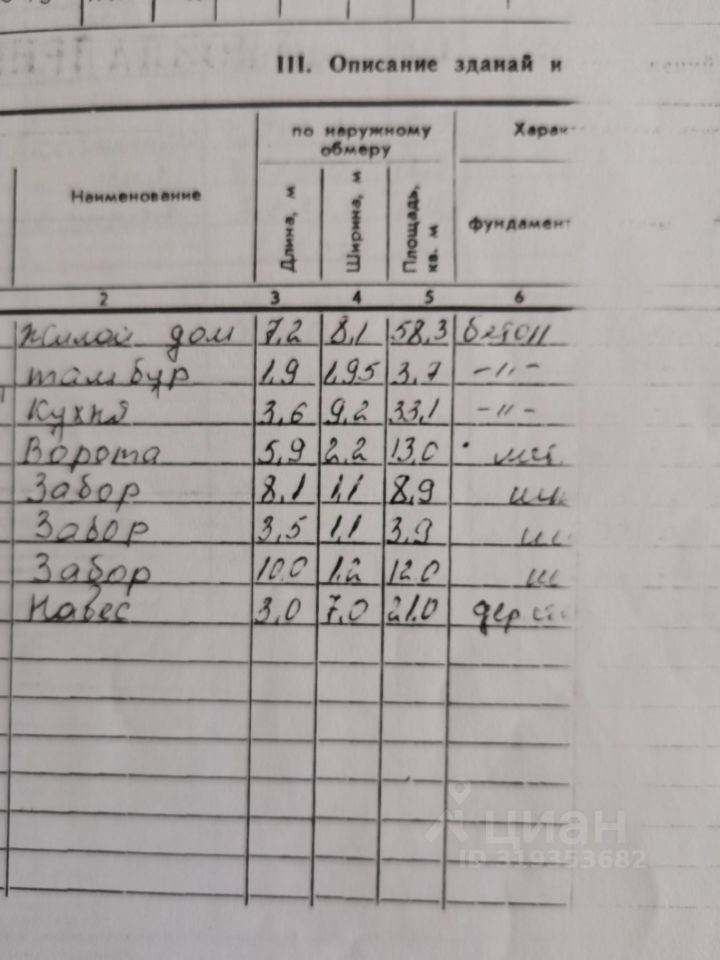 III. Описание зданай и
Наименование
по наружному
обмеру
Длина, м
Ширина, м
Площадь, кв. м
Харак
фундамент
2 3 4 5 6
Жилой дом 7,2 8,1 58,3 бетон
тамбур 1,9 1,95 3,7 –„–
Кухня 3,6 9,2 33,1 –„–
Ворота 5,9 2,2 13,0
Забор 8,1 1,1 8,9
Забор 3,5 1,1 3,9
Забор 10.0 1.2 12.0
Навес 3,0 7,0 21.0
циан
ID 319353682